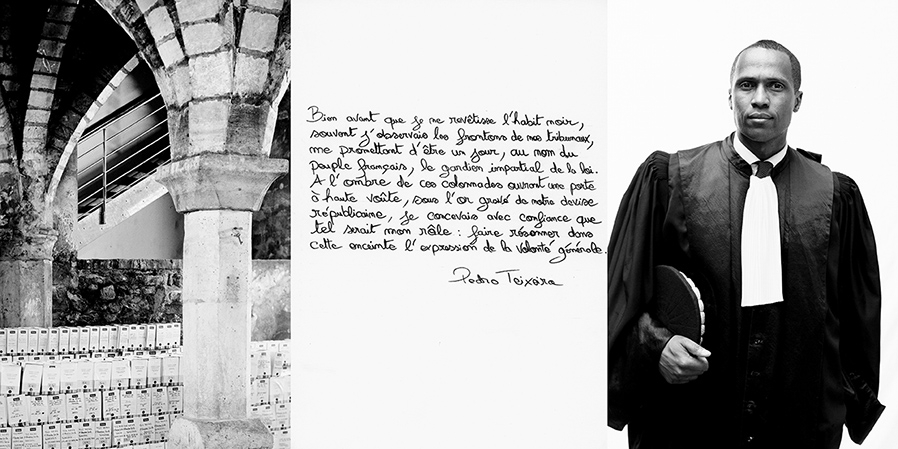 Bien avant que je me revêtisse l'habit noir,
souvent j'observais les frontons de nos tribunaux,
me promettant d'être un jour, au nom du
peuple français, le gardien impartial de la loi.
A l'ombre de ces colonnades ouvrant une porte
à haute voûte, sous l'or gravé de notre devise
républicaine, je concevais avec confiance que
tel serait mon rôle : faire résonner dans
cette enceinte l'expression de la volonté générale.
Pedro Teixeira